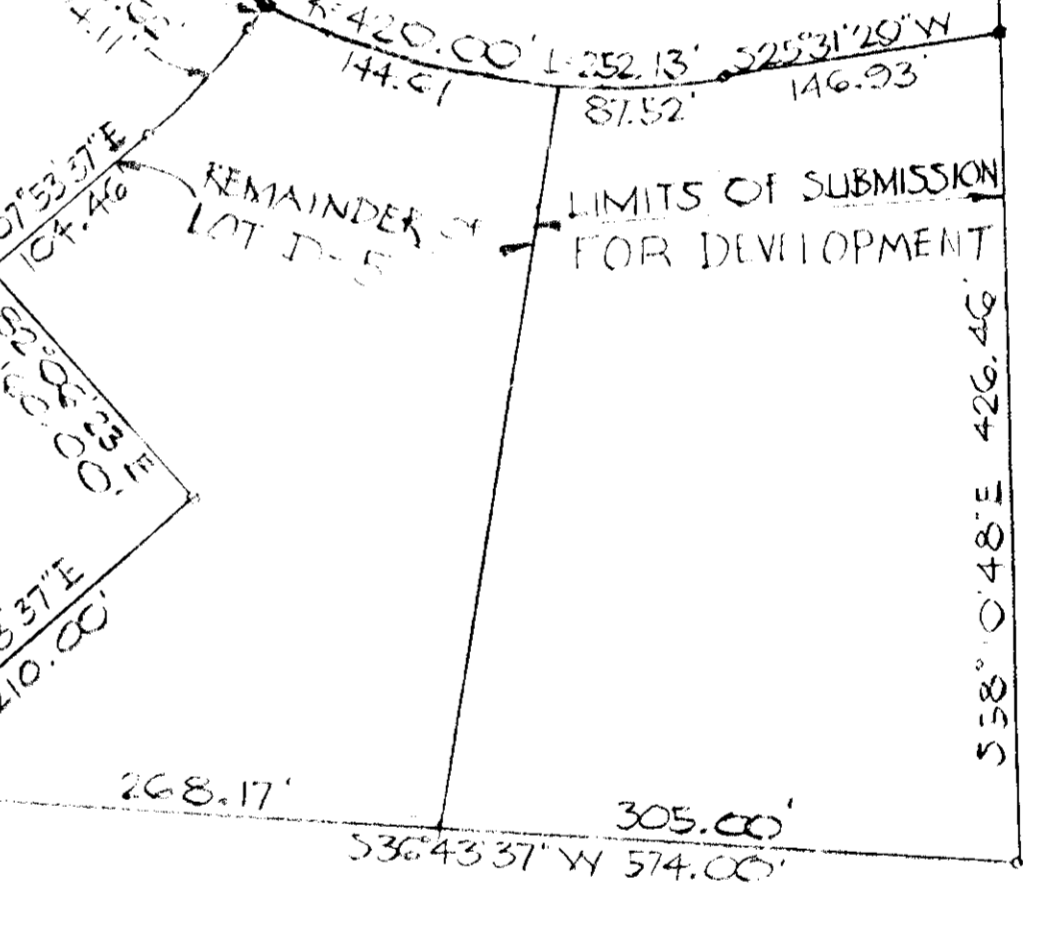 R=420.00' L=252.13' S25°31'20"W
144.61
87.52'
146.93'
4.11'
07°53'37"E
104.46'
REMAINDER OF
LOT D-5
LIMITS OF SUBMISSION
FOR DEVELOPMENT
82°06'23"E
60.00'
37"E
210.00'
426.46'
0'48"E
268.17'
305.00'
S36°43'37"W 574.00'